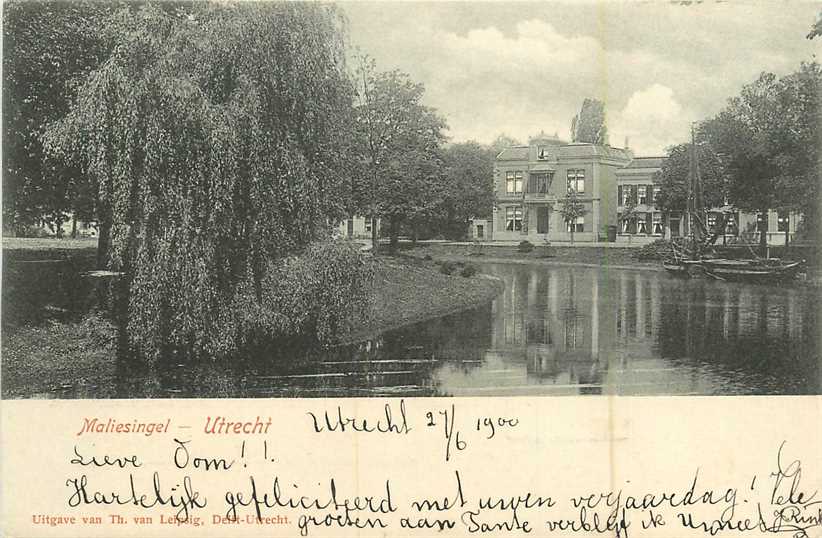 Maliesingel – Utrecht
Utrecht 27/6 1900
Lieve Oom!!.
Hartelijk gefeliciteerd met uwen verjaardag! Vele
groeten aan Tante verblijf ik Uw
Uitgave van Th. van Leipsig, Delft-Utrecht.